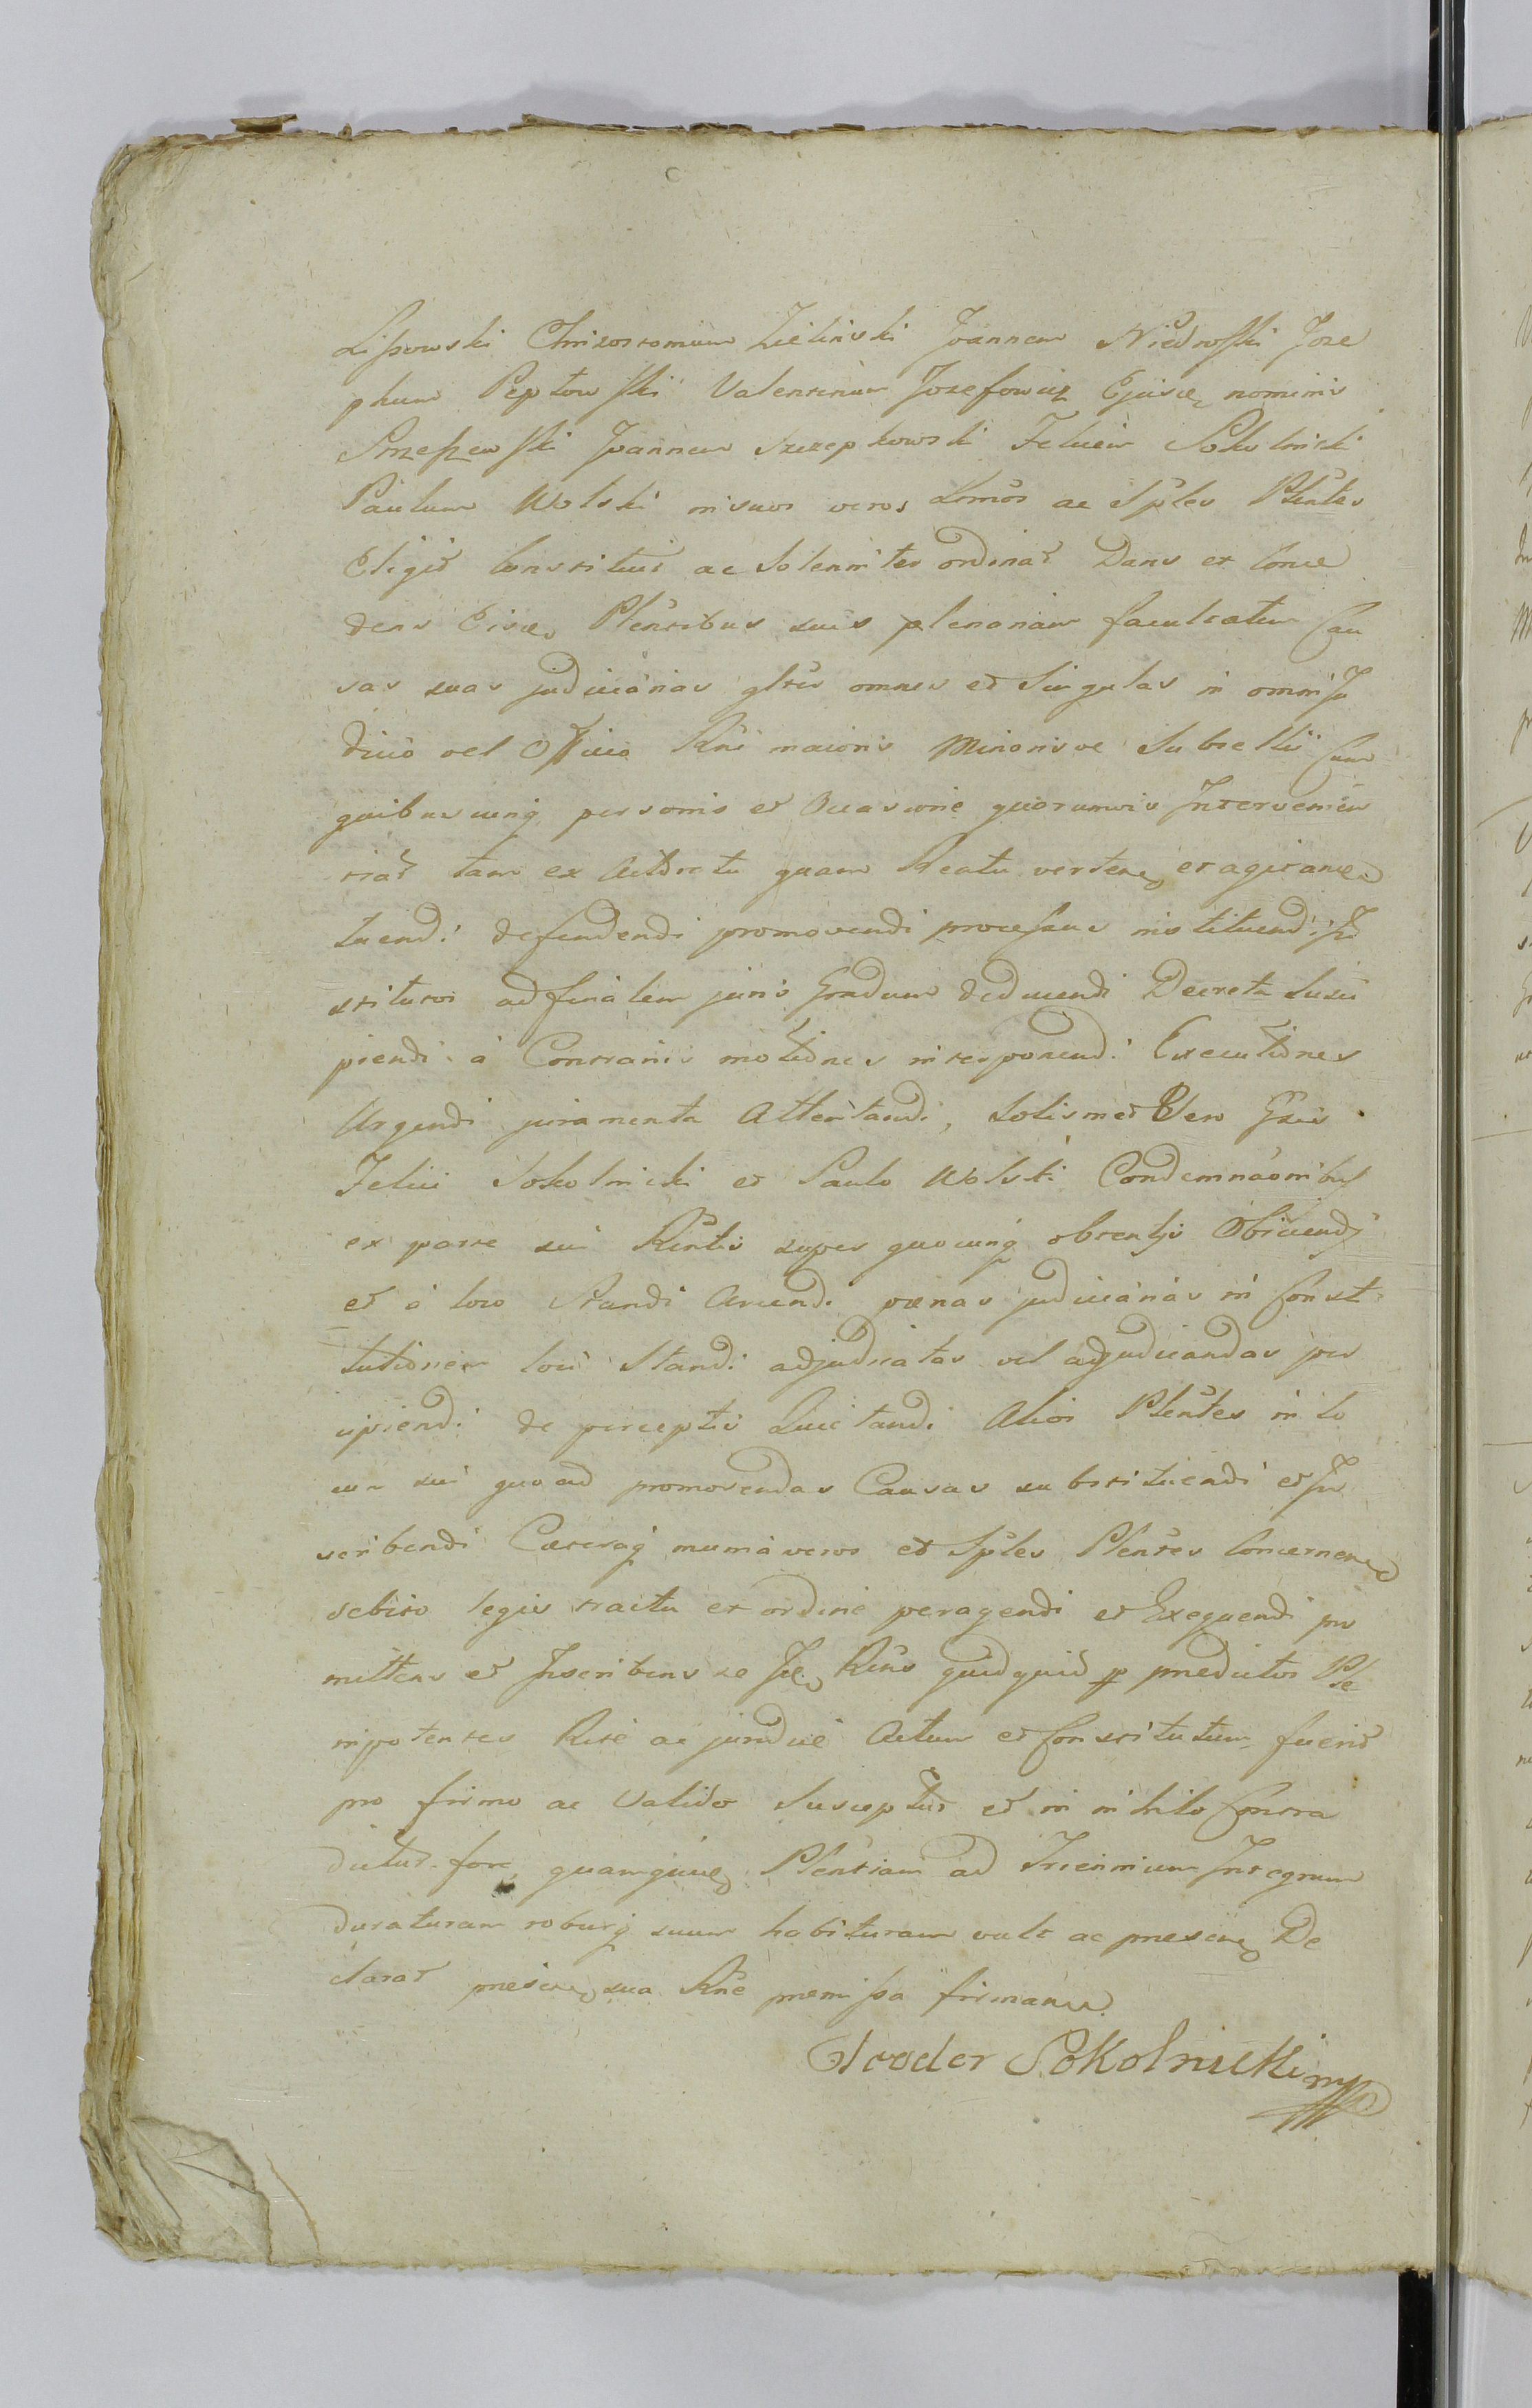 Lissowski Chrisostomum Zielinski Joannem Niedroski Jose
phum Peptowski Valentinum Josefowicz Ejusd nominis
Joannem Szczepkowski Felicem Sokolnicki
Paulum Wolski in suos veros Lgmos ac Sples Plentes
Eligit Constituit ac Solenniter ordinat Dans et Conce
dens Eisd Plentibus suis plenariam facultatem Cau
sas suas judiciarias gltes omnes et Singulas in omni Ju
dicio vel Officio Rni maioris Minorisve Subsellii Cum
quibusvis cunq personis et Occasione quorumvis Intervenien
tiar tam ex Actoratu quam Reatu verten et agitan
tuendi defendendi promovendi processus instituendi In
stitutos ad finalem juris Gradum deducendi Decreta Susci
piendi a Contrariis motiones interponendi Executiones
Urgendi juramenta Attentandi, Solismet Vero Gsis
Felici Sokolnicki et Paulo Wolski Condemnaonibus
ex parte sui Rentis super quocunq obtentis Obiiciendi
et a loco Standi Arcendi pænas judiciarias in Consti
tutionem loci Standi adjudicatas vel adjudicandas per
cipiendi de perceptis Quietandi Alios Plentes in lo
cum sui quoad promovendas Causas substituendi et In
scribendi Cæteraq munia veros et Sples Plentes Concernen
debito legis tractu et ordine peragendi et Exequendi pro
mittens et Inscribens se Id Rens quidquid p prædictos Ple
nipotentes Rite ac juridice Actum et Constitutum fuerit
pro firmo ac Valido Suscepturr et in nihilo Contra
dictur fore, quamquid Plentiam ad Triennium Integrum
duraturam roburq suum habituram vult ac præsen De
clarat præsen sua Rne præmissa firmans.
Teodor Sokolnicki mp